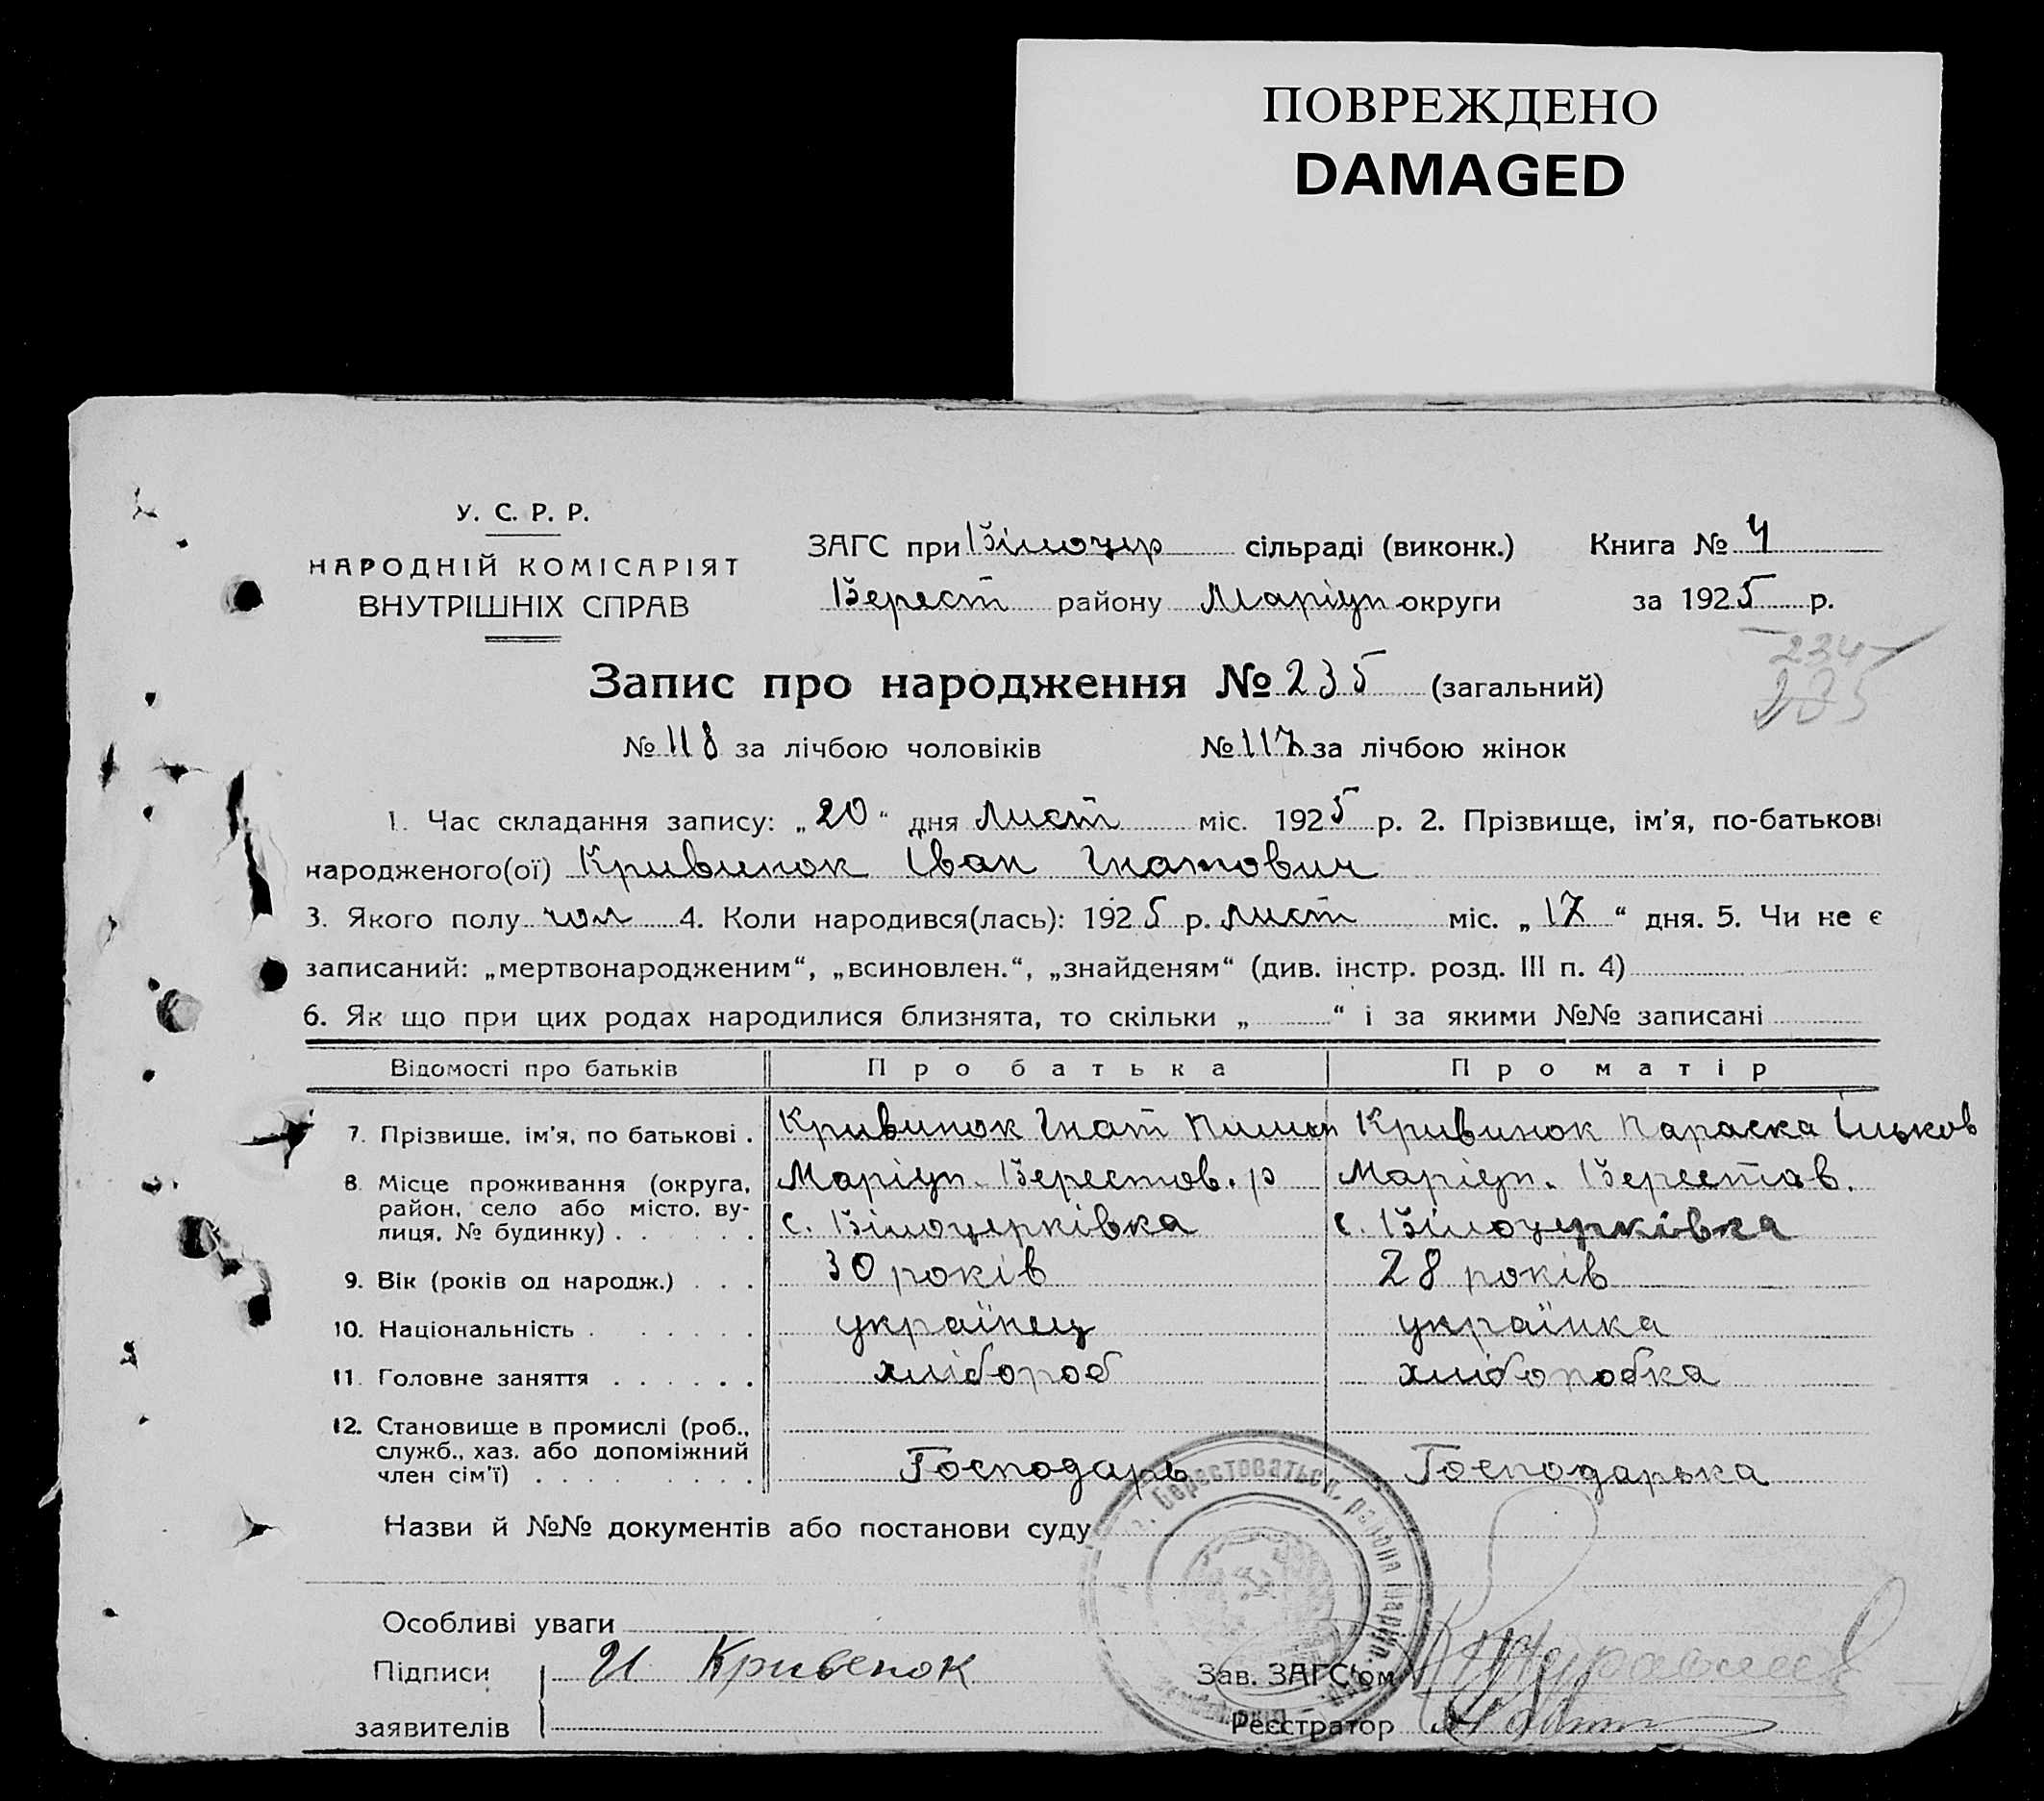 ПОВРЕЖДЕНО
DAMAGED
У. С. Р. Р.
НАРОДНІЙ КОМІСАРІЯТ
ВНУТРІШНІХ СПРАВ
ЗАГС при Білоцер сільраді (виконк.) Книга № 4
Берест району Маріуп округи за 1925 р.
234
235
Запис про народження № 235 (загальний)
№ 118 за лічбою чоловіків № 117 за лічбою жінок
1. Час складання запису: „20“ дня лист міс. 1925 р. 2. Прізвище, ім'я, по-батькові
народженого(ої) Кривинок Іван Гнатович
3. Якого полу чол 4. Коли народився(лась): 1925 р. лист міс. „17“ дня. 5. Чи не є
записаний: „мертвонародженим“, „всиновлен.“, „знайденям“ (див. інстр. розд. III п. 4)
6. Як що при цих родах народилися близнята, то скільки „ “ і за якими №№ записані
Відомості про батьків Про батька Про матір
7. Прізвище, ім'я, по батькові . Кривинок Гнат Пилип Кривинок Параска Ільков
8. Місце проживання (округа, район, село або місто, ву-лиця, № будинку) Маріуп. Берестов. р Маріуп. Берестов.
с. Білоцерківка с. Білоцерківка
9. Вік (років од народж.) 30 років 28 років
10. Національність українец українка
11. Головне заняття хлібороб хліборобка
12. Становище в промислі (роб., служб., хаз. або допоміжний член сім'ї) Господарь Господарька
Назви й №№ документів або постанови суду
Особливі уваги
Підписи И Кривенок Зав. ЗАГС'ом
заявителів Реєстратор